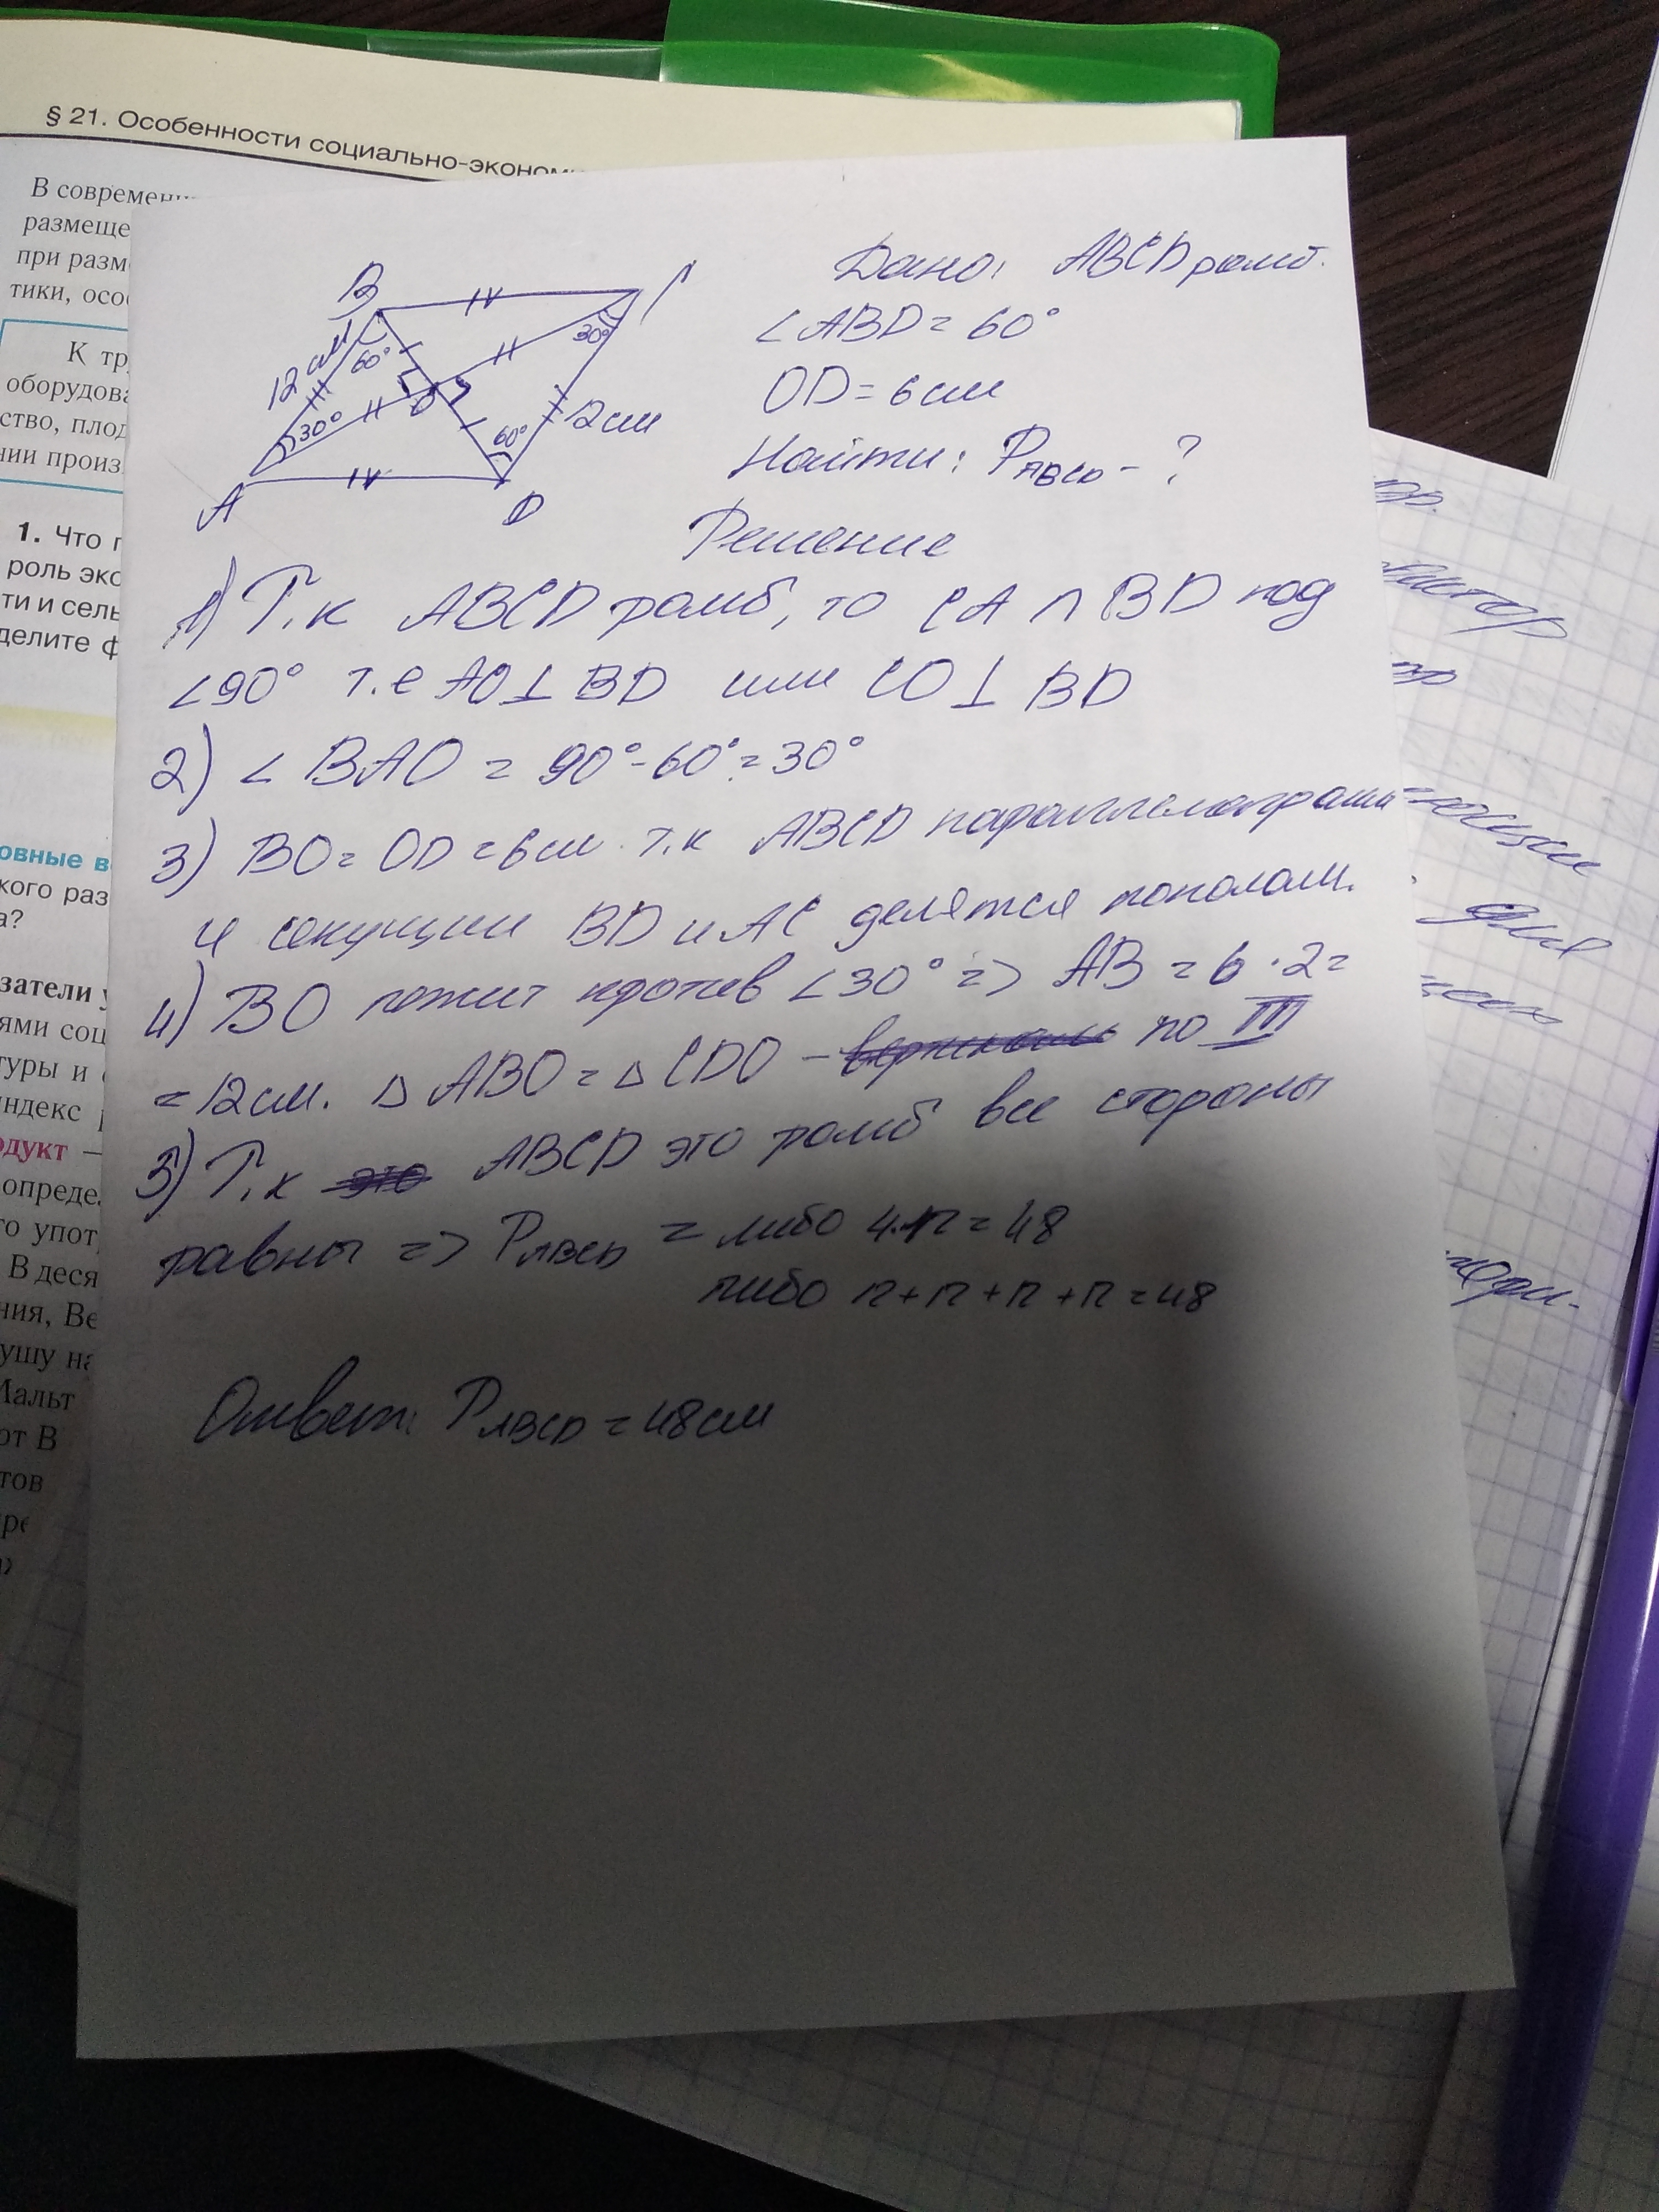 § 21. Особенности социально-эконом
В современн
размеще
при разм
тики, осо
К тр
оборудова
ство, плод
нии произ
1. Что п
роль эко
ти и сель
делите ф
овные в
кого раз
а?
затели у
ями соц
туры и
ндекс
одукт —
опреде
го упот
В деся
ния, Ве
ушу на
Мальт
от В
тов
В C
12 см 60° 30°
30° O 60° 12 см
A D
Дано: ABCD ромб.
∠ABD = 60°
OD = 6 см
Найти: PABCD - ?
Решение
1) Т.к ABCD ромб, то CA ∩ BD под
∠90° т.е AO ⊥ BD или CO ⊥ BD
2) ∠ BAO = 90° - 60° = 30°
3) BO = OD = 6 см. т.к ABCD параллелограмм
и секущии BD и AC делятся пополам.
4) BO лежит против ∠30° => AB = 6 · 2 =
= 12 см. Δ ABO = Δ CDO – по III
5) Т.к ABCD это ромб все стороны
равны => PABCD = либо 4·12 = 48
либо 12 + 12 + 12 + 12 = 48
Ответ: PABCD = 48 см